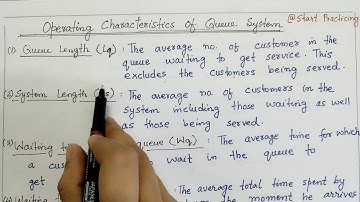 Operating Characteristics of Queue System
@Start Practicing
(1) Queue Length (Lq) : The average no. of customer in the
queue waiting to get service. This
excludes the customers being served.
(2) System Length : The average no. of customers in the
System including those waiting as well
as those being served.
(3) Waiting queue (Wq) : The average time for which
a cus wait in the queue to
get
: The average total time spent by
the moment he arrives